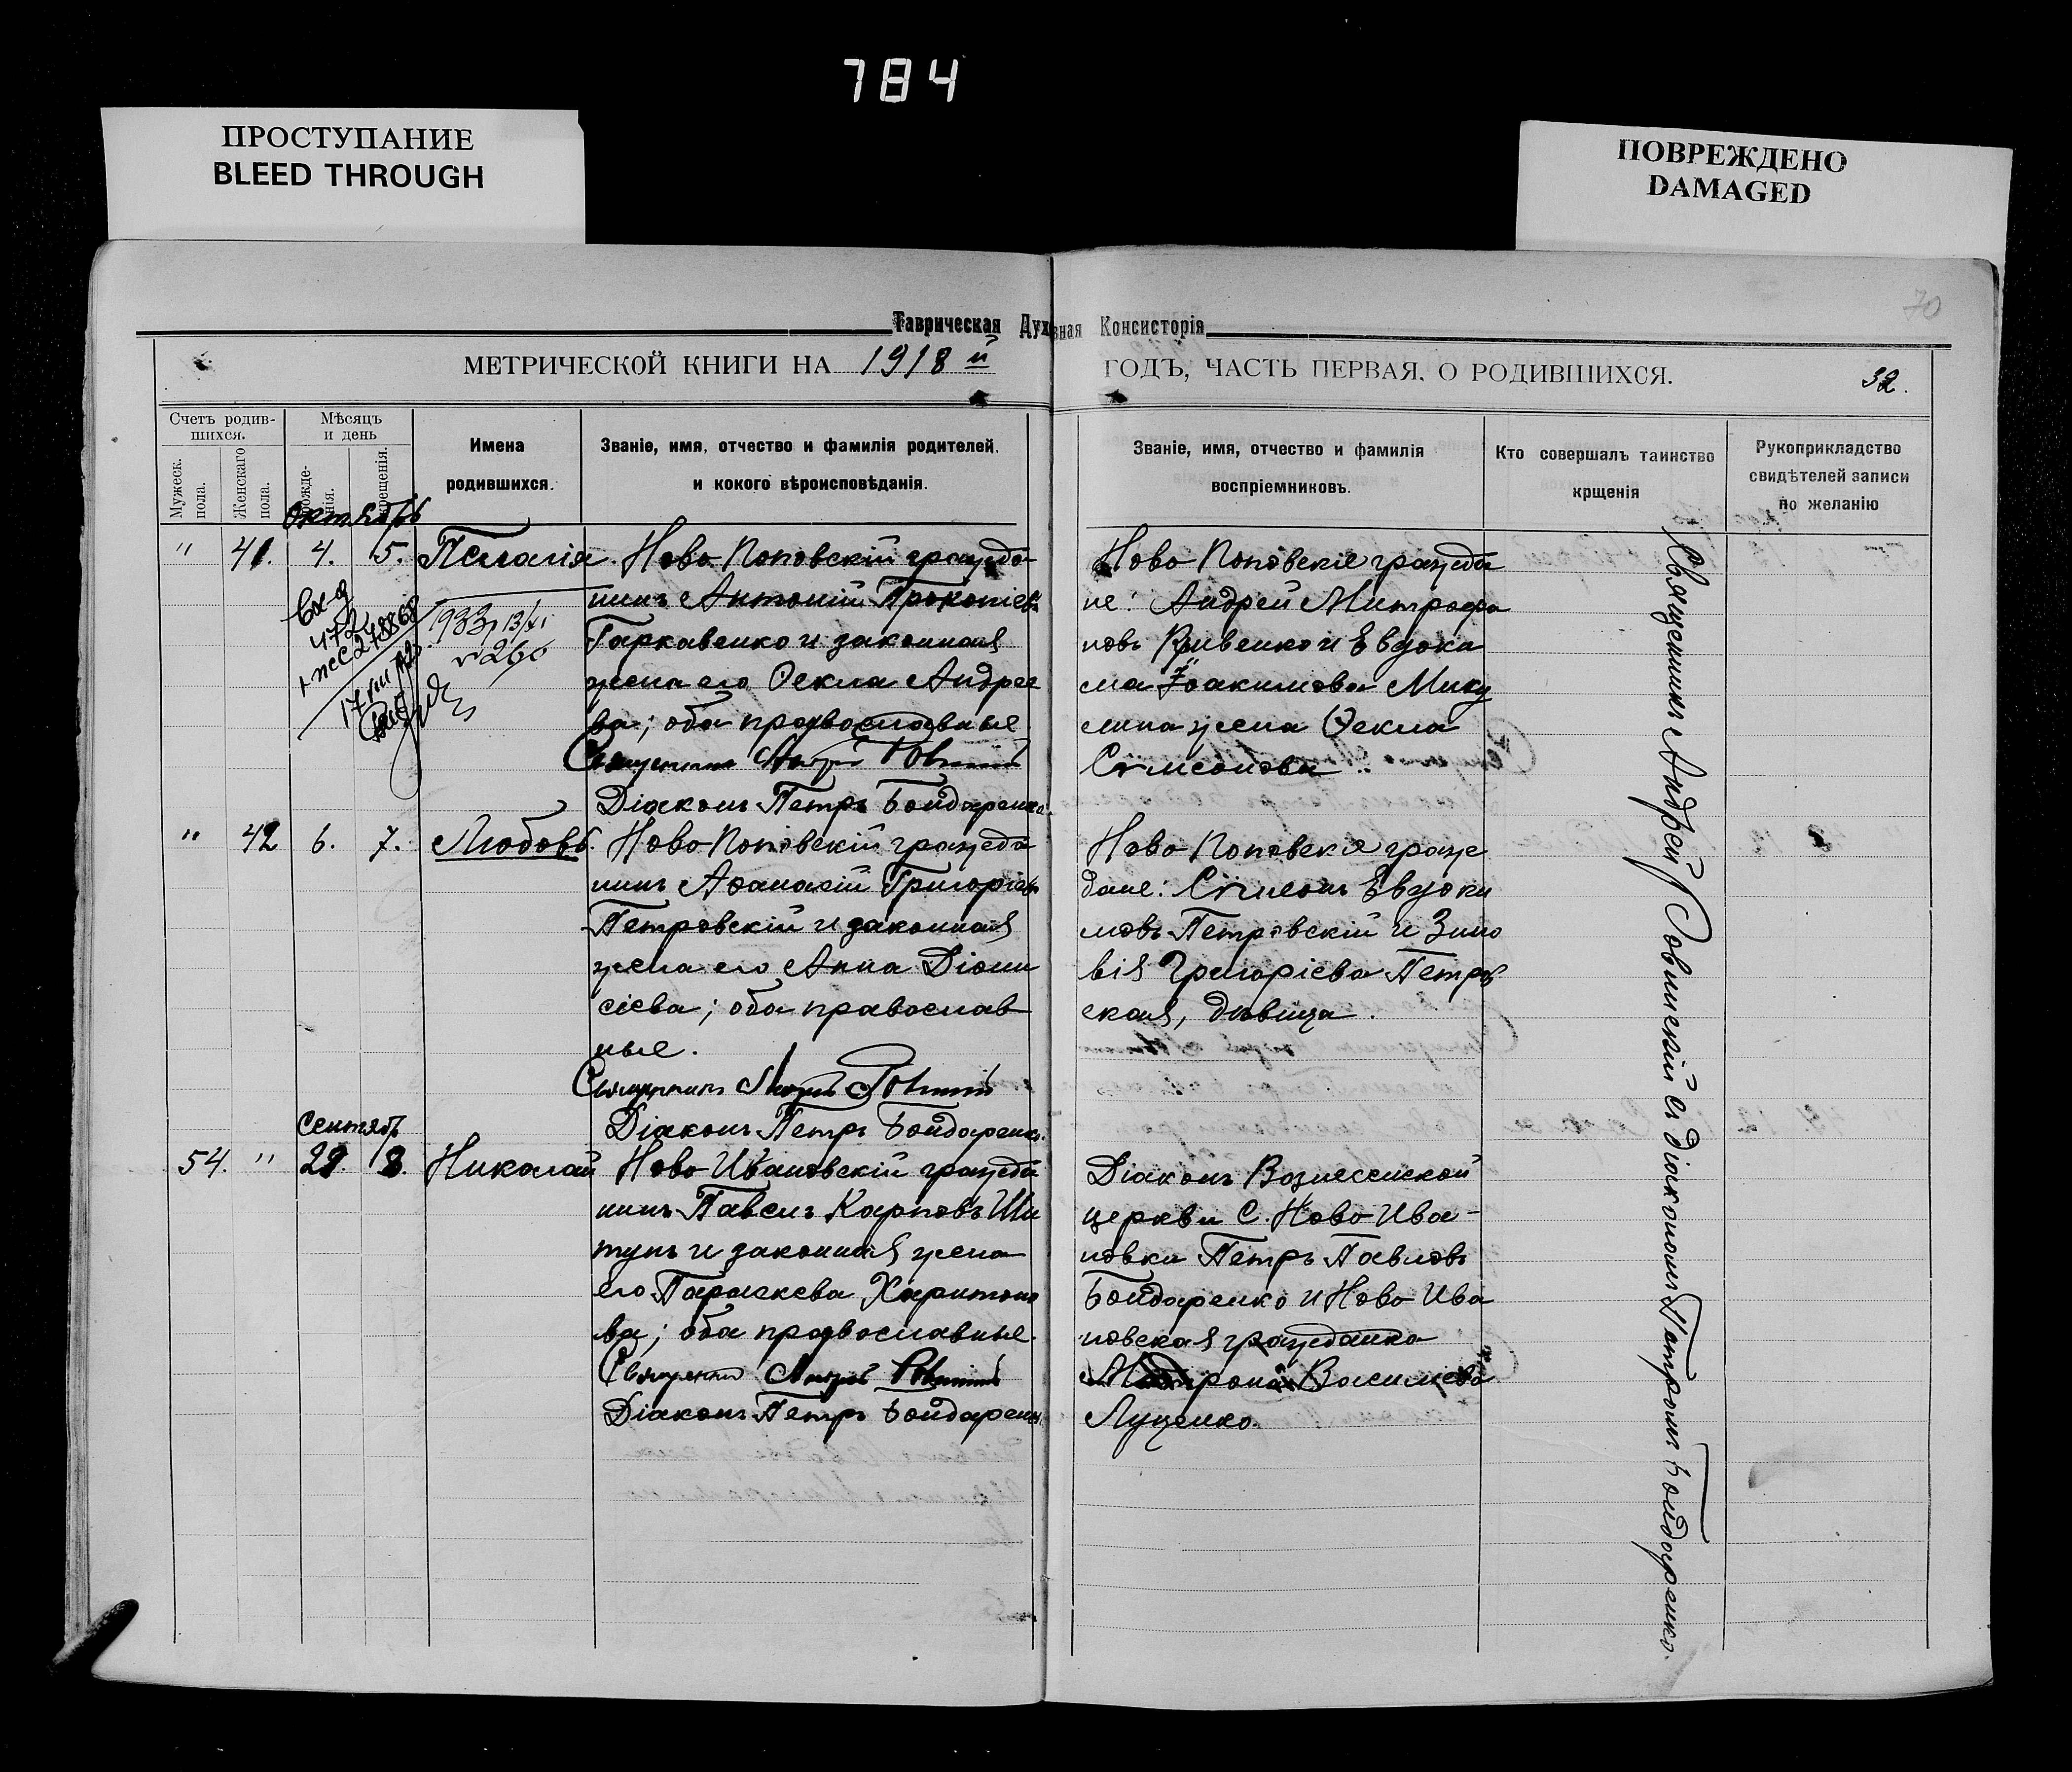 784
ПРОСТУПАНИЕ
BLEED THROUGH
ПОВРЕЖДЕНО
DAMAGED
70
Таврическая Духовная Консисторія
МЕТРИЧЕСКОЙ КНИГИ НА 1918 й
ГОДЪ, ЧАСТЬ ПЕРВАЯ, О РОДИВШИХСЯ.
32.
Счетъ родив-
шихся.
Мужеск.
пола.
Женскаго
пола.
Мѣсяцъ
и день
рожде-
нія.
крещенія.
Имена
родившихся.
Званіе, имя, отчество и фамилія родителей,
и кокого вѣроисповѣданія.
Званіе, имя, отчество и фамилія
воспріемниковъ.
Кто совершалъ таинство
крщенія
Рукоприкладство
свидѣтелей записи
по желанію
Октябрь
" 41. 4. 5. Пелагія.
Ново Поповскій гражда-
нинъ Антоній Прокопіевъ
Гаркавенко и законная
жена его Ѳекла Андрее
ва; оба православные
Священникъ
Діаконъ Петръ Бондаренко
Ново Поповскіе гражда
не: Андрей Митрофа
новъ Кривенко и Евдоки
ма Іоакимова Мику
лина жена Ѳекла
Сѵмеонова
вход
472
278868
1933 13/XI
№ 260
" 42 6. 7. Любовь.
Ново Поповскій гражда
нинъ Аѳанасій Григоріевъ
Петровскій и законная
жена его Анна Діони
сіева; оба православ
ные.
Священникъ
Діаконъ Петръ Бондаренко.
Ново Поповскіе граж
дане: Сѵмеонъ Евдоки
мовъ Петровскій и Зино
вія Григоріева Петров
ская, дѣвица.
Сентябрь
54. " 29. 3. Николай
Ново Ивановскій гражда
нинъ Павелъ Карповъ Ши
тунъ и законная жена
его Параскева Харитоно
ва; оба православные.
Священникъ
Діаконъ Петръ Бондаренко
Діаконъ Вознесенской
церкви С. Ново Ива-
новки Петръ Павловъ
Бондаренко и Ново Ива
новская гражданка
Матрона Василіева
Луценко.
Священникъ Андрей Ровинскій съ діакономъ Петромъ Бондаренко.